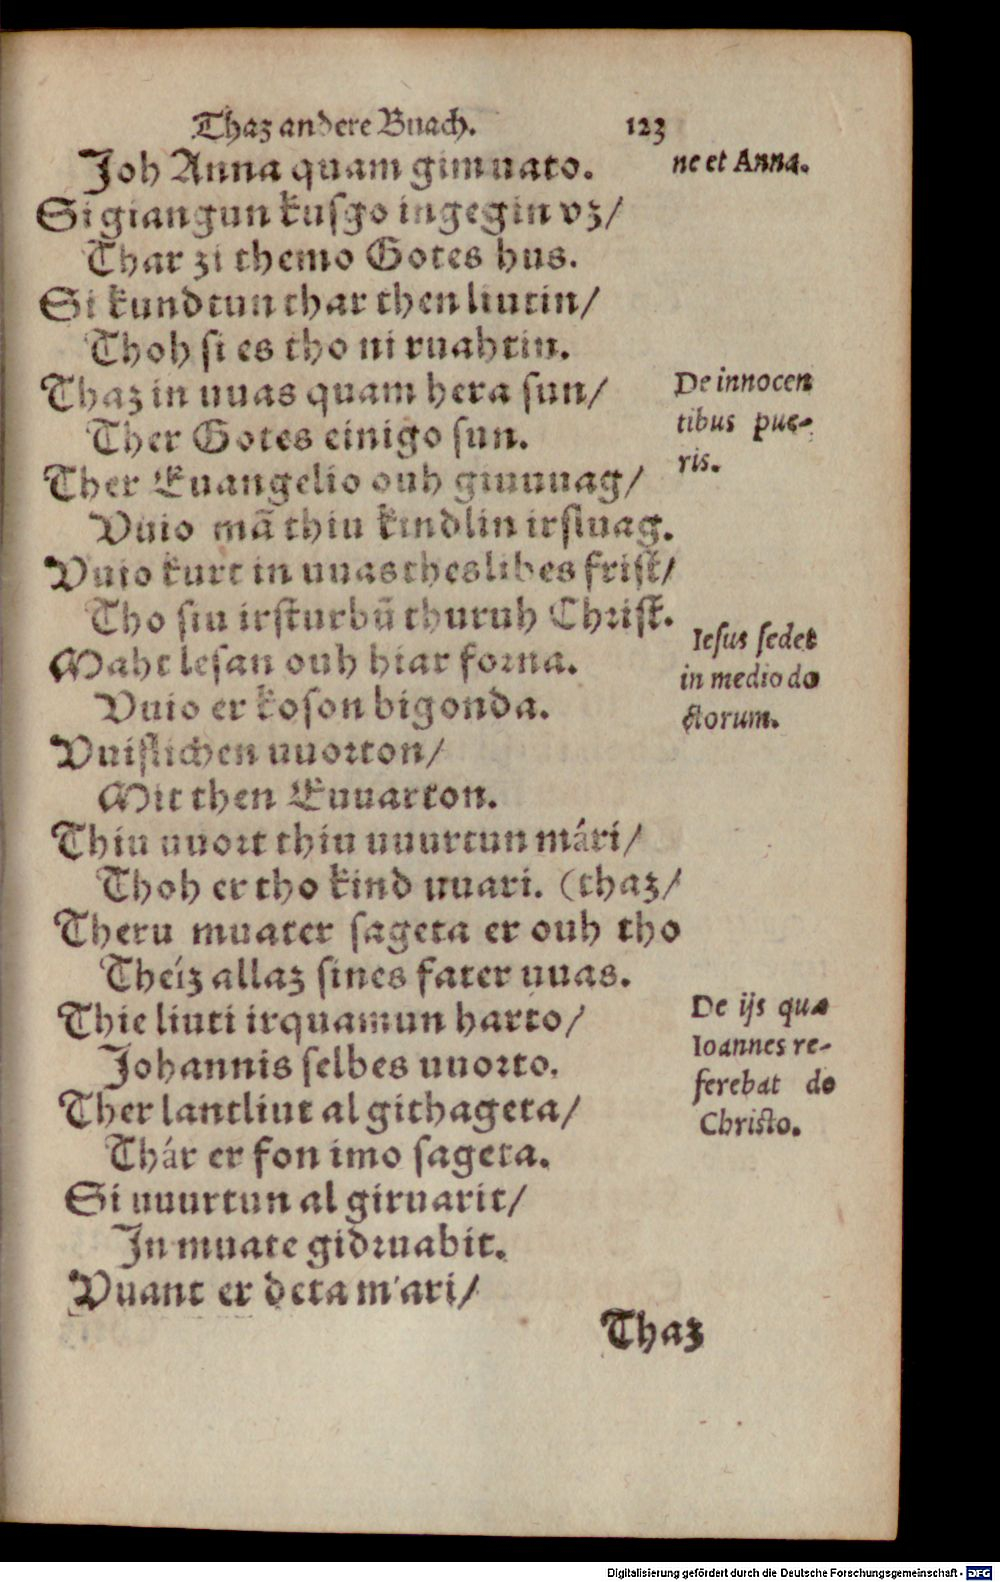 Thaz andere Buach. 123
Joh Anna quam gimuato.
ne et Anna.
Si giangun kusgo ingegin vz/
Thar zi themo Gotes hus.
Si kundtun thar then liutin/
Thoh si es tho ni ruahtin.
Thaz in uuas quam hera sun/
Ther Gotes einigo sun.
De innocen
tibus pue-
ris.
Ther Euangelio ouh giuuuag/
Vuio mã thiu kindlin irsluag.
Vuio kurt in uuas thes libes frist/
Tho siu irsturbũ thuruh Christ.
Maht lesan ouh hiar forna.
Vuio er koson bigonda.
Iesus sedet
in medio do
ctorum.
Vuislichen uuorton/
Mit then Euuarton.
Thiu uuort thiu uuurtun mári/
Thoh er tho kind uuari. (thaz/
Theru muater sageta er ouh tho
Theíz allaz sines fater uuas.
Thie liuti irquamun harto/
Johannis selbes uuorto.
Ther lantliut al githageta/
Thár er fon imo sageta.
De ijs quæ
Ioannes re-
ferebat de
Christo.
Si uuurtun al giruarit/
In muate gidruabit.
Vuant er deta m'ari/
Thaz
Digitalisierung gefördert durch die Deutsche Forschungsgemeinschaft - DFG